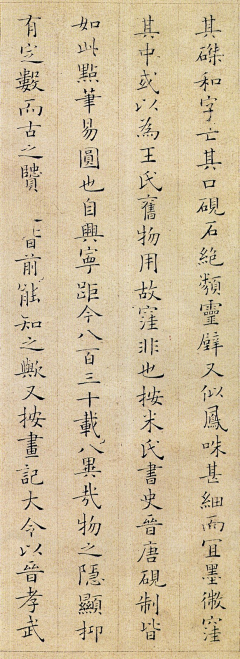 其磔和字亡其口硯石絶類靈壁又似鳳咮甚細而宜墨微窪
其中或以為王氏舊物用故窪非也按米氏書史晉唐硯制皆
如此點筆易圓也自興寧距今八百三十載異哉物之隱顯抑
有定數而古之賢已前能知之歟又按畫記大令以晉孝武